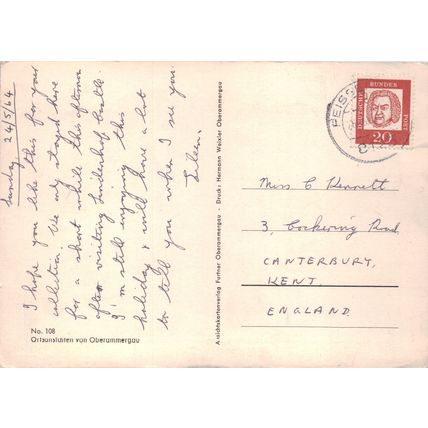 Sunday 24/5/64
I hope you like this for your
collection. We only stayed here
for a short while this afternoon
after visiting Linderhof Castle.
I'm still enjoying this
holiday & will have a lot
to tell you when I see you.
Eileen.
No. 108
Ortsansichten von Oberammergau
Ansichtskartenverlag Furtner Oberammergau - Druck: Hermann Weixler Oberammergau
DEUTSCHE BUNDES POST
20
PEISS
Miss C Kennett
3, Cockering Road,
CANTERBURY,
KENT
ENGLAND